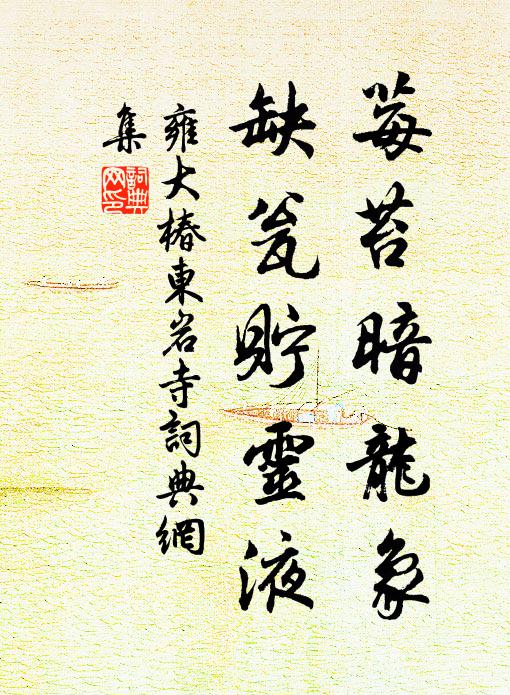 莓苔暗龍象
缺瓮貯靈液
雍大椿東岩寺詞典網
集
詞典
网印